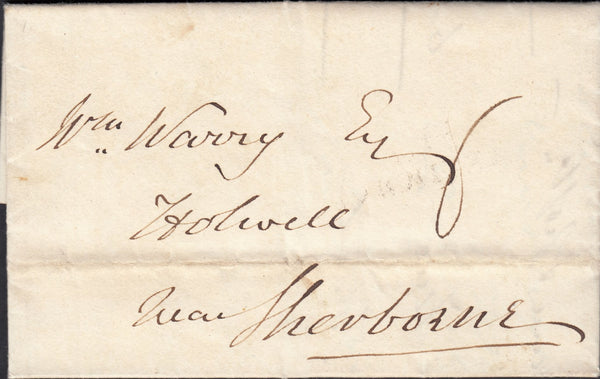 Wm Warry Esq 6
Holwell
near Sherborne